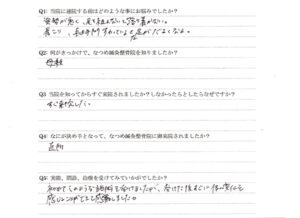 Q1: 当院に通院する前はどのような事にお悩みでしたか？
姿勢が悪く、足を組まないと落ち着かない。
肩こり、長時間すわっていると足がだるくなる。
Q2: 何がきっかけで、なつめ鍼灸整骨院を知りましたか？
母親
Q3: 当院を知ってからすぐ来院されましたか？しなかったとしたらなぜですか？
すぐ来院した。
Q4: なにが決め手となって、なつめ鍼灸整骨院に御来院されましたか？
近所
Q5: 実際、問診、治療を受けてみていかがでしたか？
初めてこのような施術を受けましたが、受けた後すぐに体の変化を
感じることができて感動しました。